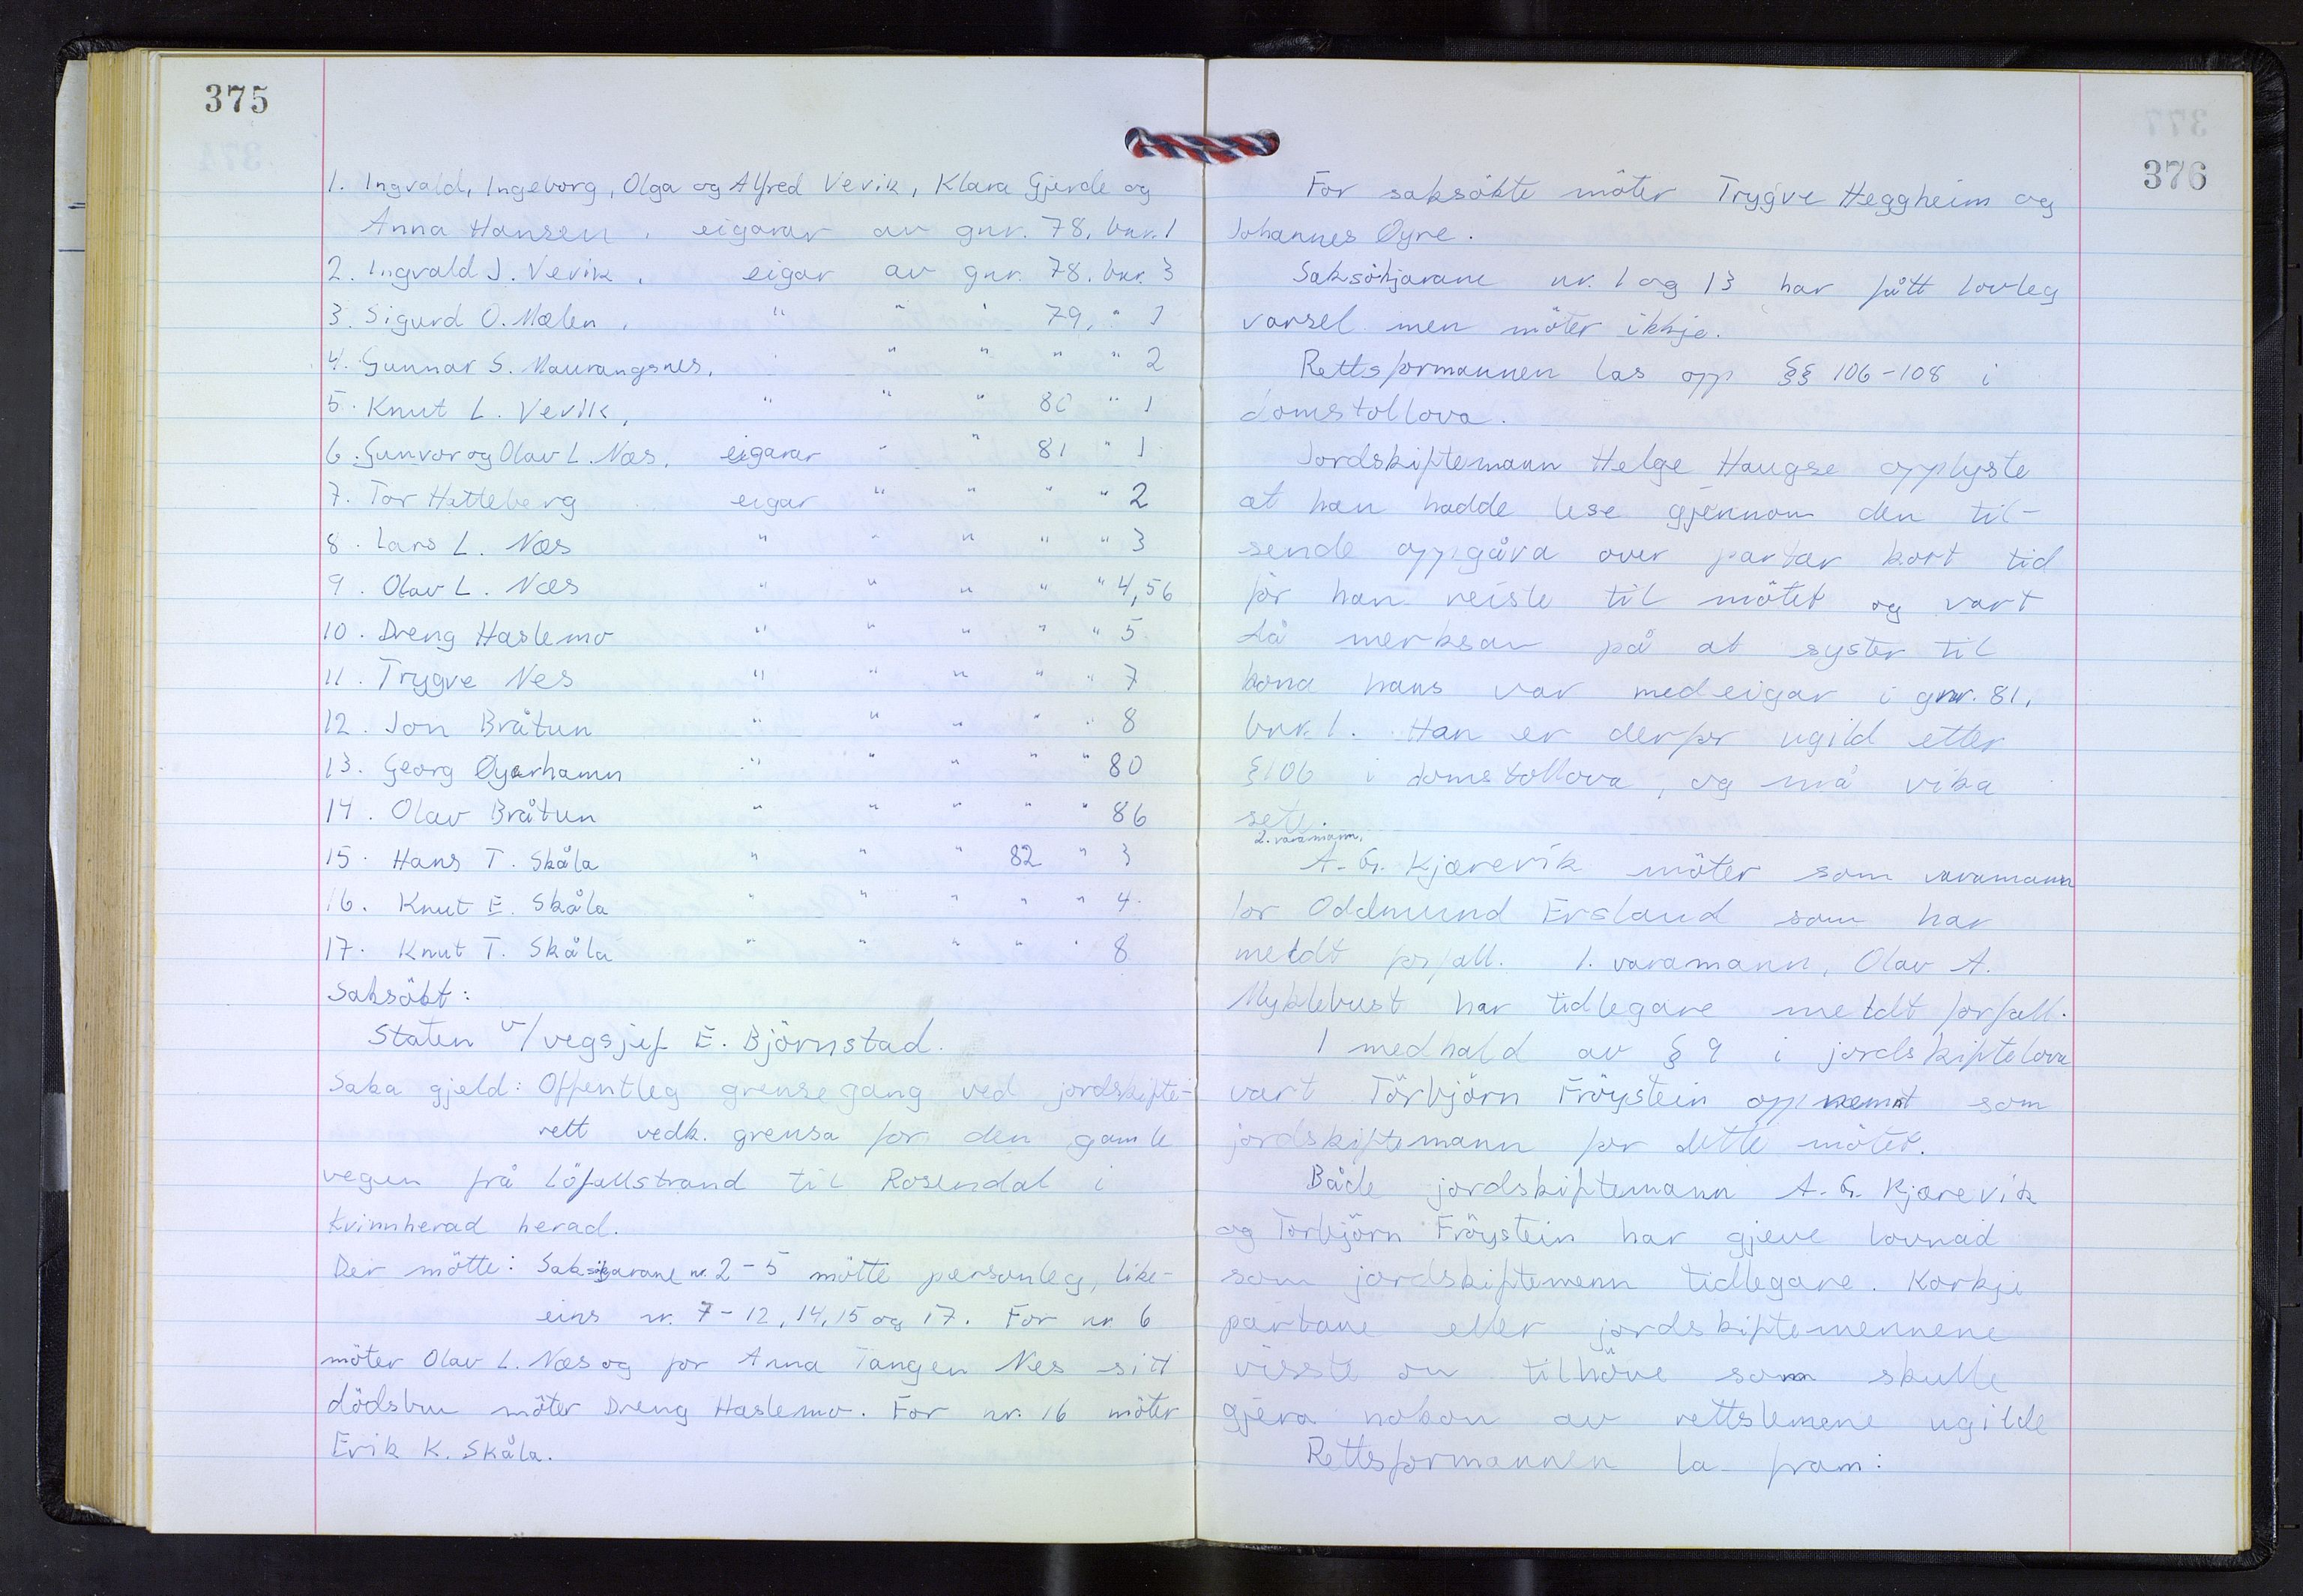 375
1. Ingvald, Ingeborg, Olga og Alfred Vevik, Klara Gjerde og
Anna Hansen, eigarar av gnr. 78, bnr. 1
2. Ingvald J. Vevik, eigar av gnr. 78, bnr. 3
3. Sigurd O. Mælen, " " " 79, " 1
4. Gunnar S. Maurangsnes, " " " " " 2
5. Knut L. Vevik, " " " 80 " 1
6. Gunvor og Olav L. Næs, eigarar " " 81 " 1
7. Tor Hatteberg eigar " " " " 2
8. Lars L. Næs " " " " " 3
9. Olav L. Næs " " " " " 4,56
10. Dreng Haslemo " " " " " 5
11. Trygve Nes " " " " " 7
12. Jon Bråtun " " " " " 8
13. Georg Øyerhamn " " " " " 80
14. Olav Bråtun " " " " " 86
15. Hans T. Skåla " " " 82 " 3
16. Knut E. Skåla " " " " " 4
17. Knut T. Skåla " " " " " 8
Saksökt:
Staten v/ vegsjef E. Björnstad.
Saka gjeld: Offentleg grensegang ved jordskifte-
rett vedk. grensa for den gamle
vegen frå Löfallstrand til Rosendal i
Kvinnherad herad.
Der mötte: Saksökjarane nr. 2-5 mötte personleg, like-
eins nr. 7-12, 14, 15 og 17. For nr. 6
möter Olav L. Næs og for Anna Tangen Nes sitt
dödsbu möter Dreng Haslemo. For nr. 16 möter
Erik K. Skåla.
376
For saksökte möter Trygve Heggheim og
Johannes Øyre.
Saksökjarane nr. 1 og 13 har fått lovleg
varsel men möter ikkje.
Rettsformannen las opp §§ 106-108 i
domstollova.
Jordskiftemann Helge Haugse opplyste
at han hadde lese gjennom den til-
sende oppgåva over partar kort tid
för han reiste til mötet og vart
då merksam på at syster til
kona hans var medeigar i gnr. 81,
bnr. 1. Han er derfor ugild etter
§ 106 i domstollova, og må vika
sete.
2. varamann,
A. G. Kjærevik möter som varamann
for Oddmund Ersland som har
meldt forfall. 1. varamann, Olav A.
Myklebust har tidlegare meldt forfall.
I medhald av § 9 i jordskiftelova
vart Törbjörn Fröystein oppnemnt som
jordskiftemann for dette mötet.
Både jordskiftemann A. G. Kjærevik
og Torbjörn Fröystein har gjeve lovnad
som jordskiftemenn tidlegare. Korkje
partane eller jordskiftemennene
visste om tilhöve som skulle
gjera nokon av rettslemene ugilde
Rettsformannen la fram: